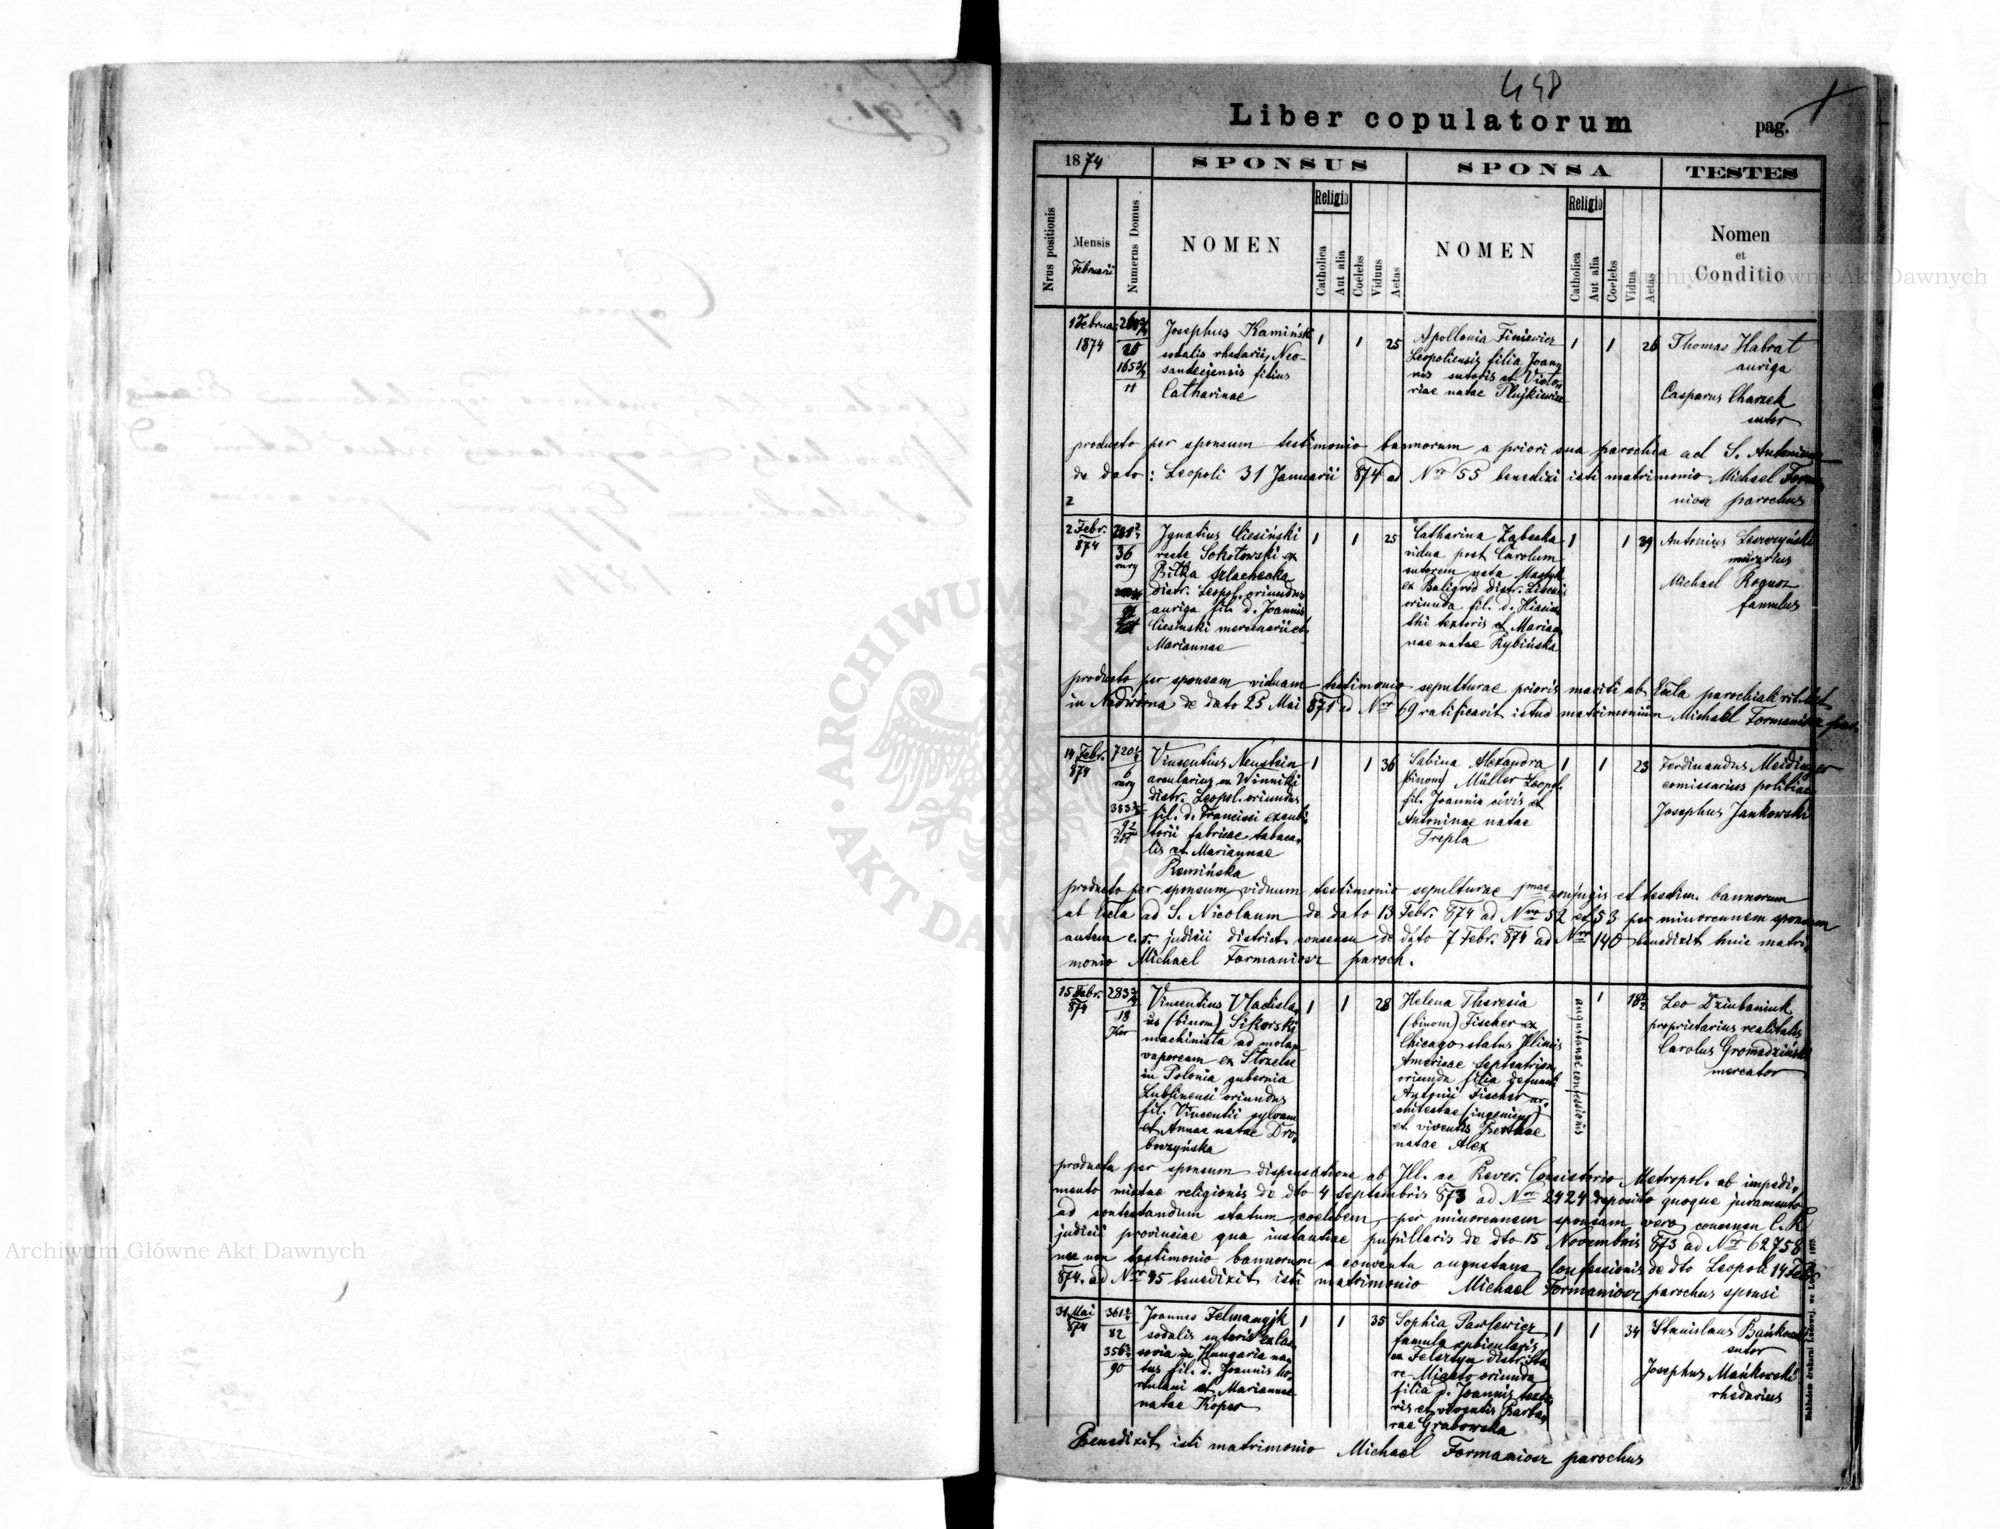 448
Liber copulatorum
pag. 1
1874
SPONSUS
SPONSA
TESTES
Nrus positionis
Mensis
Februarii
Numerus Domus
NOMEN
Religio
Catholica
Aut alia
Coelebs
Viduus
Aetas
NOMEN
Religio
Catholica
Aut alia
Coelebs
Vidua
Aetas
Nomen
et
Conditio
1 Februar.
1874
Josephus Kamiński
sodalis rhedarii, Neo-
sandecensis filius
Catharinae
1
1
25
Apollonia Finiewicz
Leopoliensis filia Joan-
nis sutoris et Victo-
riae natae
1
1
26
Thomas Habrat
auriga
Casparus Charzek
sutor
producto per sponsum testimonio bannorum a priori sua parochia ad S. Antonium
de dato: Leopoli 31 Januarii 874 ad Nro 55 benedixi isti matrimonio Michael Forma-
niosz parochus
2 Febr.
874
36
Ignatius Ciesiński
recte Sokołowski ex
Biłka szlachecka
distr. Leopol. oriundus
auriga fil. d. Joannis
Ciesinski mercenarii et
Mariannae
1
1
25
Catharina
vidua post Carolum
sutorem nata
ex Baligród distr.
oriunda fil. d. Hiacin-
thi textoris et Marian-
nae natae Rybińska
1
1
39
Antonius
murarius
Michael Rogusz
famulus
producto per sponsam viduam testimonio sepulturae prioris mariti ab Eccla parochiali rit. lat.
in Nadwórna de dato 25 Mai 871 ad Nro 69 ratificavit istud matrimonium Michael Formaniosz par.
14 Febr.
874
720 1/4
6
Vincentius Neustein
arcularius ex Winniki
distr. Leopol. oriundus
fil. d. Francisci excubi-
torii fabricae tabaca-
lis et Mariannae
Kamińska
1
1
36
Sabina Alexandra
(binom) Müller Leopol.
fil. Joannis civis et
Antoninae natae
Trepla
1
1
23
Ferdinandus Meidinger
comissarius politiae
Josephus Jankowski
producto per sponsum viduum testimonio sepulturae 1mae conjugis et testim. bannorum
ab Eccla ad S. Nicolaum de dato 13 Febr. 874 ad Nro 52 et 53 per minorennem sponsam
autem c.r. judicii district. consensu de dato 7 Febr. 874 ad Nro 140 benedixit huic matri-
monio Michael Formaniosz paroch.
15 Febr.
874
283 3/4
18
Vincentius Vladisla-
us (binom) Sikorski
machinista ad molam
vapoream ex Strzelce
in Polonia gubernia
Lublinensi oriundus
fil. Vincentii sylvani
et Annae natae Dro-
boszyńska
1
1
28
Helena Theresia
(binom) Fischer ex
Chicago status Illinois
Americae Septentrion.
oriunda filia defuncti
Antonii Fischer ar-
chitectae (ingenieur)
et viventis Berthae
natae Alex
augustanae confessionis
1
18 1/2
Leo Dziubaniuk
proprietarius realitatis
Carolus Gromadziński
mercator
producta per sponsum dispensatione ab Ill. ac Rever. Consistorio Metropol. ab impedi-
mento mixtae religionis de dto 4 Septembris 873 ad Nro 2424 deposito quoque juramento
ad contestandum statum coelibem, per minorennem sponsam vero consensu C.K.
judicii provinciae qua instantiae pupillaris de dto 15 Novembris 873 ad Nro 62758
nec non testimonio bannorum a conventu augustanae Confessionis de dto Leopoli 14 Febr.
874. ad Nro 95 benedixit isti matrimonio Michael Formaniosz parochus sponsi
31 Mai
874
82
90
Joannes
sodalis sutoris ex Cas-
sovia in Hungaria na-
tus fil. d. Joannis hor-
tulani et Mariannae
natae Koper
1
1
35
Sophia Pawlewicz
famula cubicularis
ex Felsztyn distr. Sta-
re-Miasto oriunda
filia d. Joannis texto-
ris et viventis Barba-
rae Grabowska
1
1
34
Stanislaus Bańkowski
sutor
Josephus Mańkowski
rhedarius
Benedixit isti matrimonio Michael Formaniosz parochus
Archiwum Główne Akt Dawnych
Archiwum Główne Akt Dawnych
ARCHIWUM GŁÓWNE AKT DAWNYCH